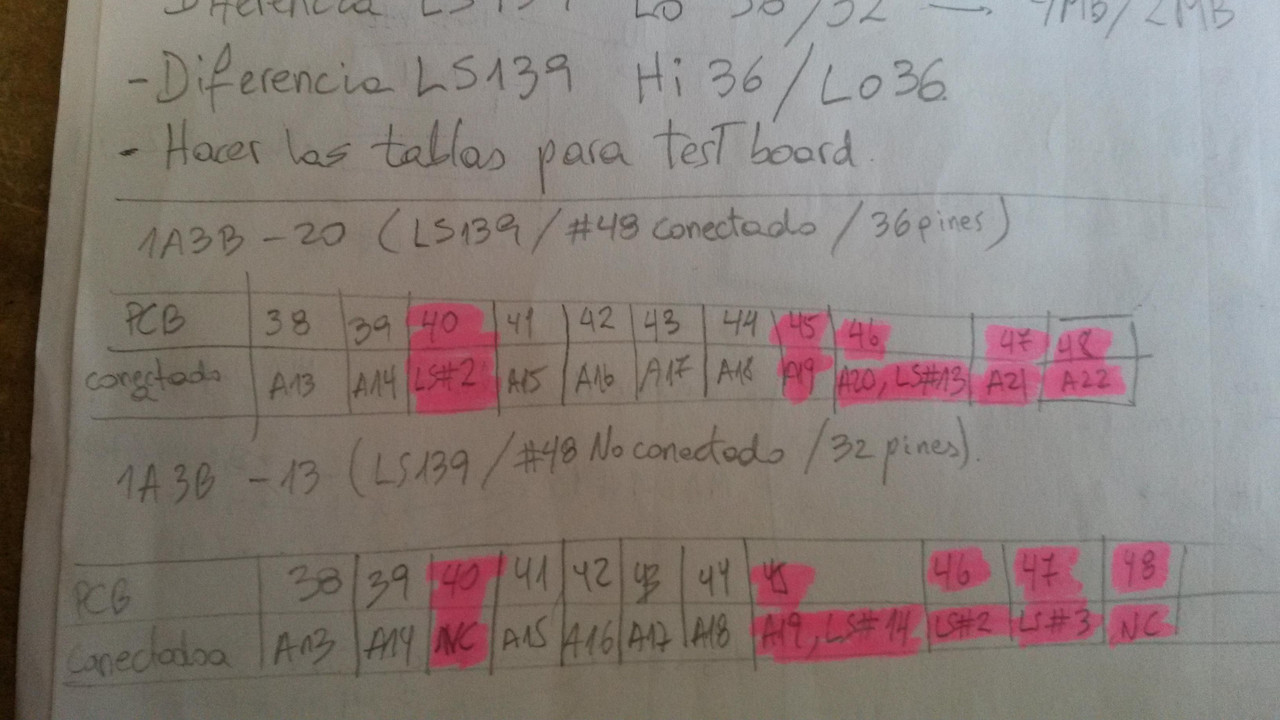 Diferencia LS139 Lo 36/32 → 4Mb/2MB
- Diferencia LS139 Hi 36/Lo36.
- Hacer las tablas para tesT board.
1A3B - 20 (LS139 / #48 conectado / 36 pines)
PCB 38 39 40 41 42 43 44 45 46 47 48
conectado a A13 A14 LS#2 A15 A16 A17 A18 A19 A20, LS#13 A21 A22
1A3B - 13 (LS139 / #48 No conectado / 32 pines).
PCB 38 39 40 41 42 43 44 45 46 47 48
Conectado a A13 A14 NC A15 A16 A17 A18 A19, LS#14 LS#2 LS#3 NC